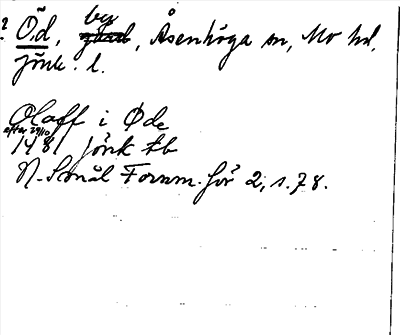 ? Öd, by, Åsenhöga sn, Mo hd,
Jönk. l.
Olaff i Øde
efter 29/10
1481 Jönk tb
N. Smål Fornm. för 2, s. 78.